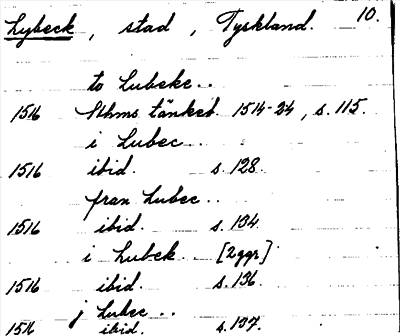 Lybeck, stad, Tyskland. 10.
to Lubeke..
1516 Sthms tänkeb. 1514-24, s. 115.
i Lubec..
1516 ibid. s. 128.
fran Lubec..
1516 ibid. s. 134.
i Lubek. [2ggr]
1516 ibid. s. 136.
j Lubec..
1516 ibid. s. 137.